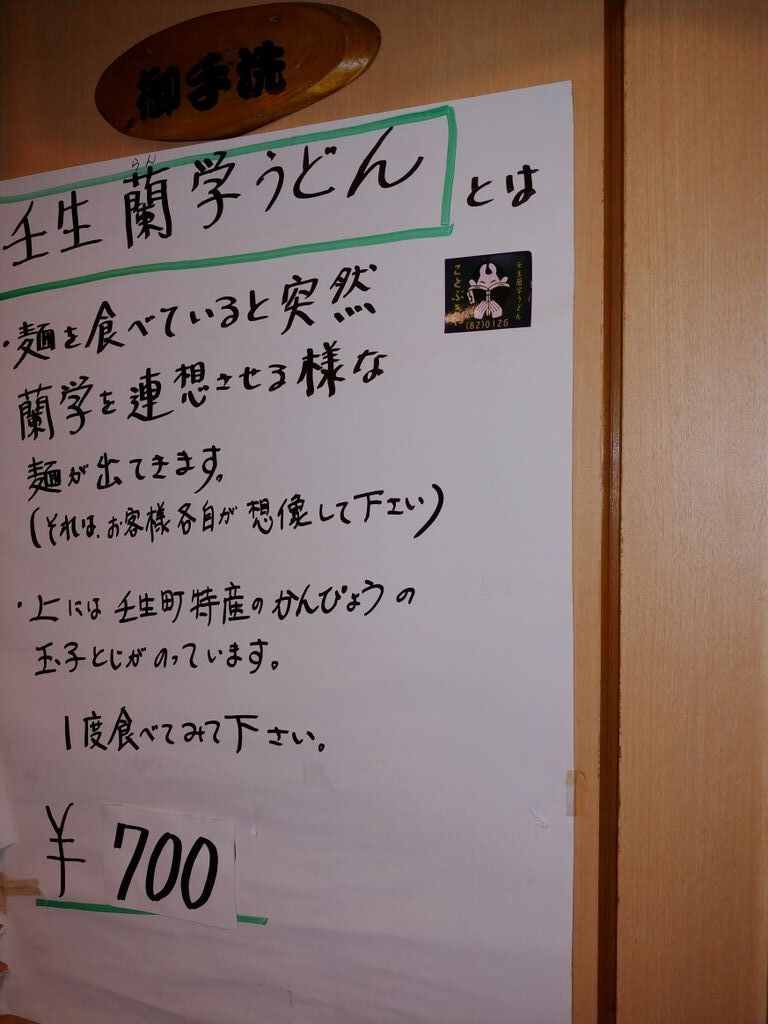 御手洗
壬生蘭学うどん とは
らん
・麺を食べていると突然
蘭学を連想させる様な
麺が出てきます。
(それは、お客様各自が想像して下さい)
・上には壬生町特産のかんぴょうの
玉子とじがのっています。
1度食べてみて下さい。
¥700
壬生蘭学うどん
ことぶきや
(82)0126